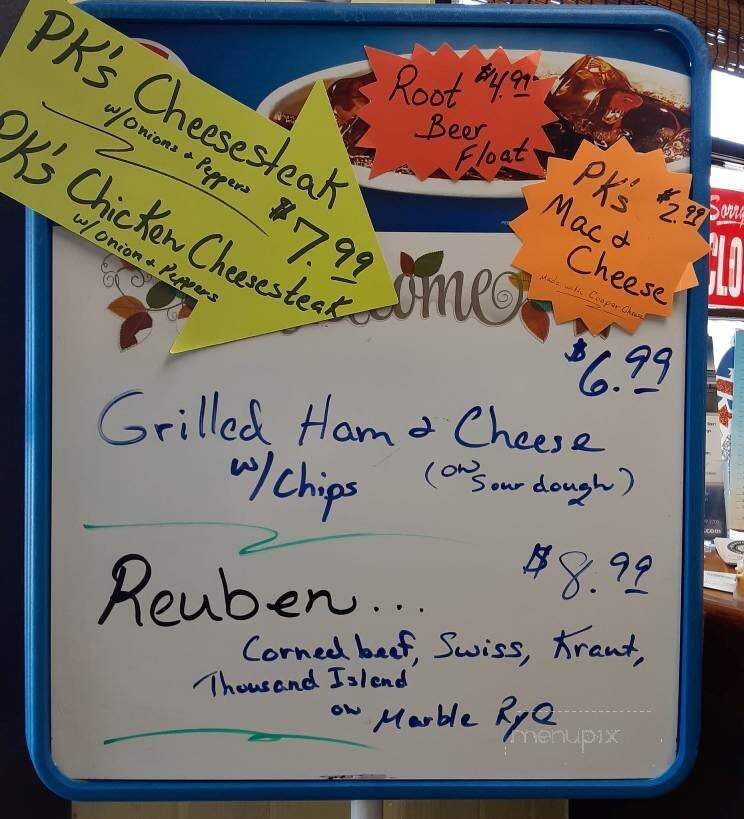 PK's Cheesesteak
w/onions & Peppers
$7.99
PK's Chicken Cheesesteak
w/onion & Peppers
Root $4.99
Beer
Float
PK's $2.99
Mac &
Cheese
Made with Cooper Cheese
come
Sorry
CLO
$6.99
Grilled Ham & Cheese
w/Chips (on Sourdough)
Reuben... $8.99
Corned beef, Swiss, Kraut,
Thousand Island
on Marble Rye
menupix
.com